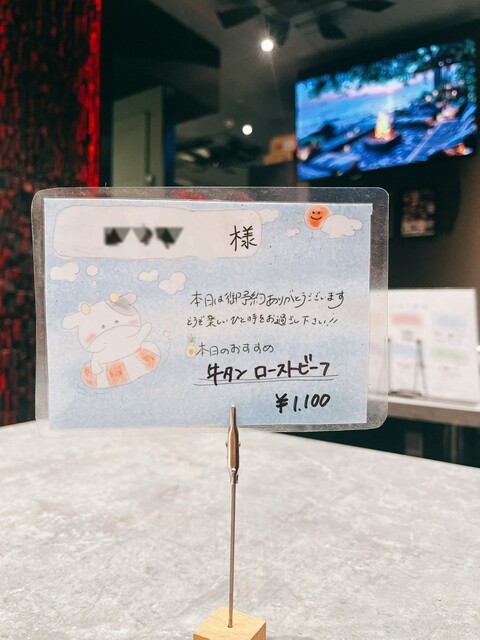 様
本日は御予約ありがとうございます
どうぞ楽しいひと時をお過し下さい!!
本日のおすすめ
牛タン ローストビーフ
¥1,100